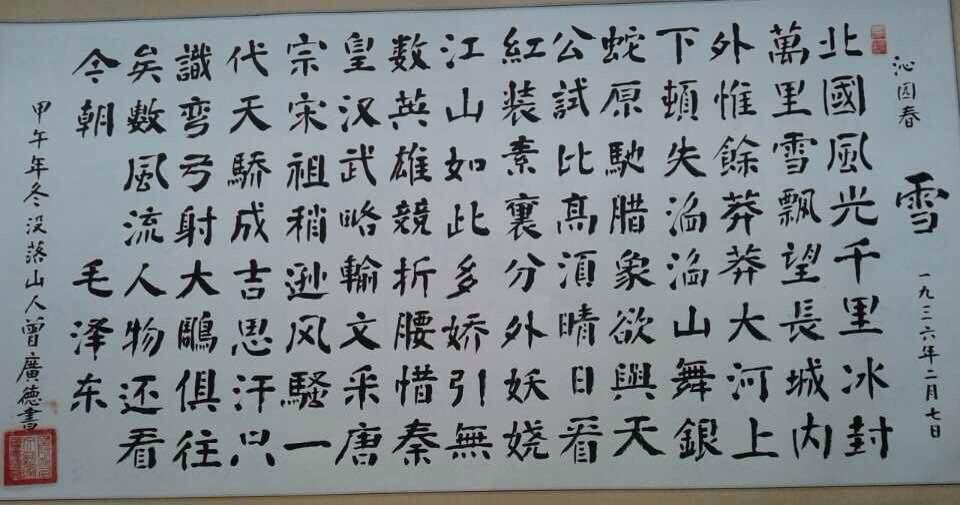 沁园春
雪
一九三六年二月七日
北國風光千里冰封
萬里雪飄望長城内
外惟餘莽莽大河上
下頓失滔滔山舞銀
蛇原馳腊象欲與天
公試比髙湏晴日看
紅装素裹分外妖娆
江山如此多娇引無
数英雄競折腰惜秦
皇汉武略輸文采唐
宗宋祖稍逊风騷一
代天驕成吉思汗只
識弯弓射大鵰俱往
矣數風流人物还看
今朝
毛泽东
甲午年冬没落山人曾廣德書